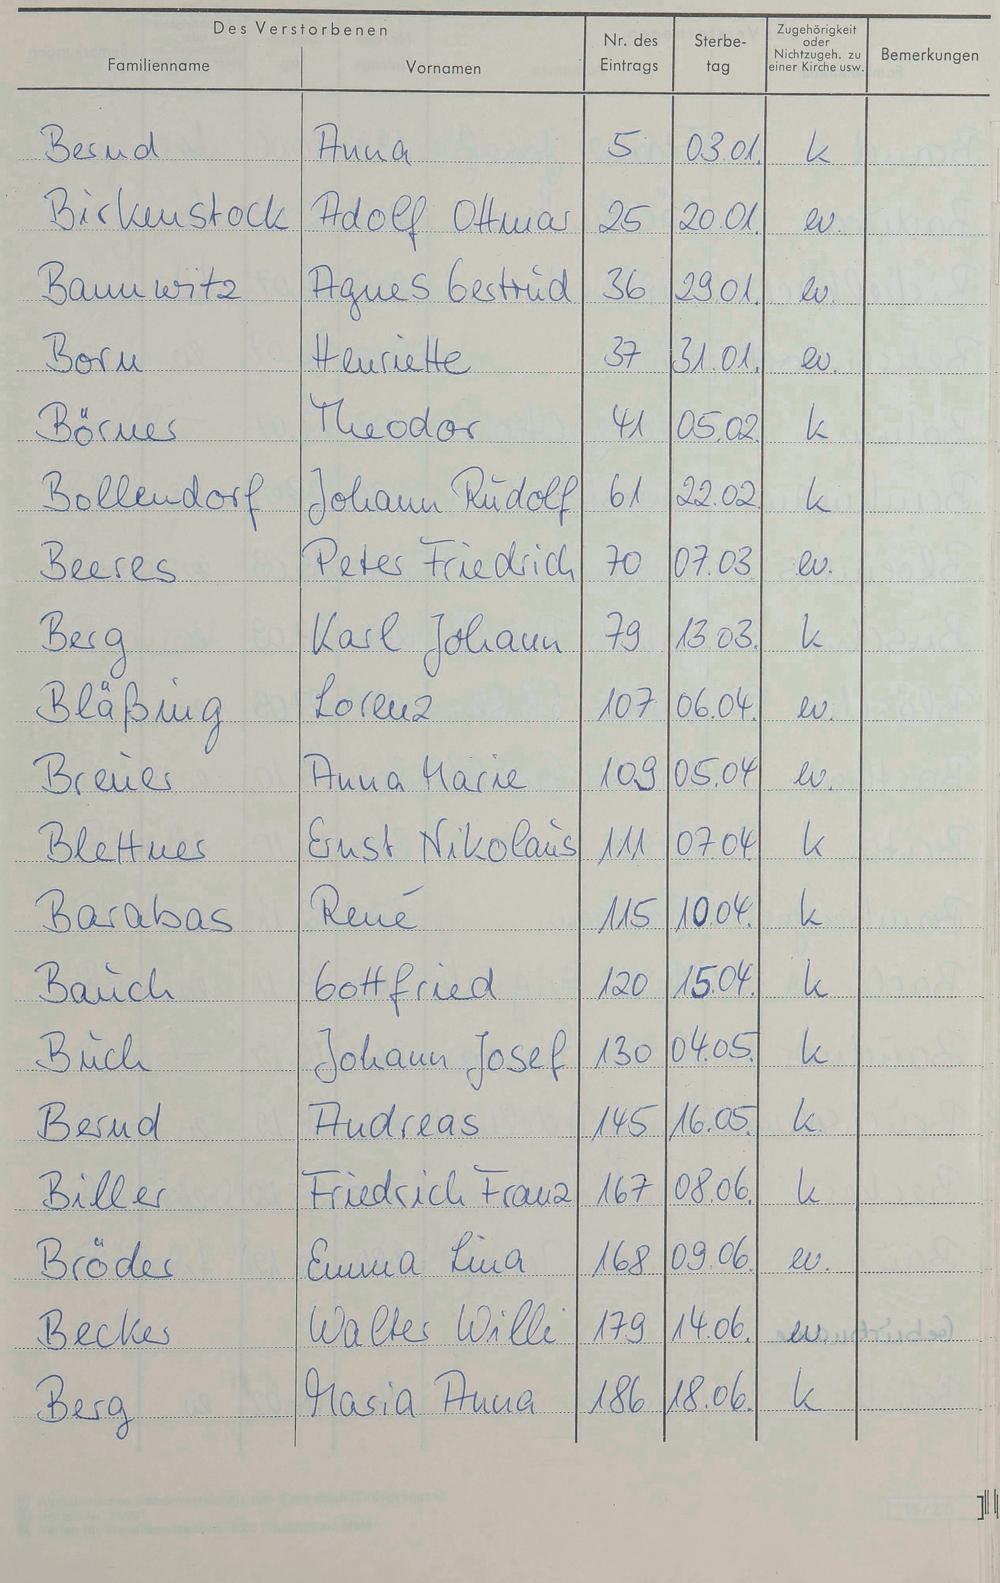 Des Verstorbenen
Familienname Vornamen Nr. des Eintrags Sterbe-tag Zugehörigkeit oder Nichtzugeh. zu einer Kirche usw. Bemerkungen
Bernd Anna 5 03.01. k
Birkenstock Adolf Ottmar 25 20.01. ev.
Bannwitz Agnes Gertrud 36 29.01. ev.
Born Henriette 37 31.01. ev.
Börner Theodor 41 05.02. k
Bollendorf Johann Rudolf 61 22.02. k
Beeres Peter Friedrich 70 07.03. ev.
Berg Karl Johann 79 13.03. k
Bläßing Lorenz 107 06.04. ev.
Breuer Anna Marie 109 05.04. ev.
Blettner Ernst Nikolaus 111 07.04. k
Barabas René 115 10.04. k
Bauch Gottfried 120 15.04. k
Buch Johann Josef 130 04.05. k
Bernd Andreas 145 16.05. k.
Biller Friedrich Franz 167 08.06. k
Bröder Emma Lina 168 09.06. ev.
Becker Walter Willi 179 14.06. ev.
Berg Maria Anna 186 18.06. k